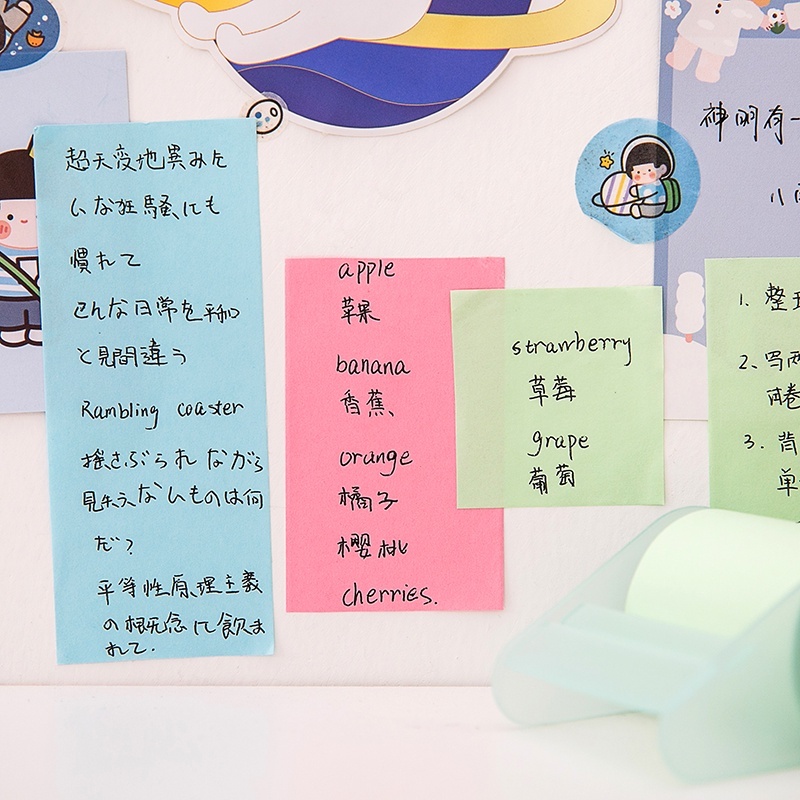 超天変地異みた
いな狂騒にも
慣れて
こんな日常を平和
と見間違う
Rambling coaster
揺さぶられながら
見失うないものは何
だ?
平等性原理主義
の概念に飲ま
れて.
apple
苹果
banana
香蕉、
orange
橘子
樱桃
cherries.
strawberry
草莓
grape
葡萄
神明有一
八
1. 整
2、写两
两卷
3. 背
单